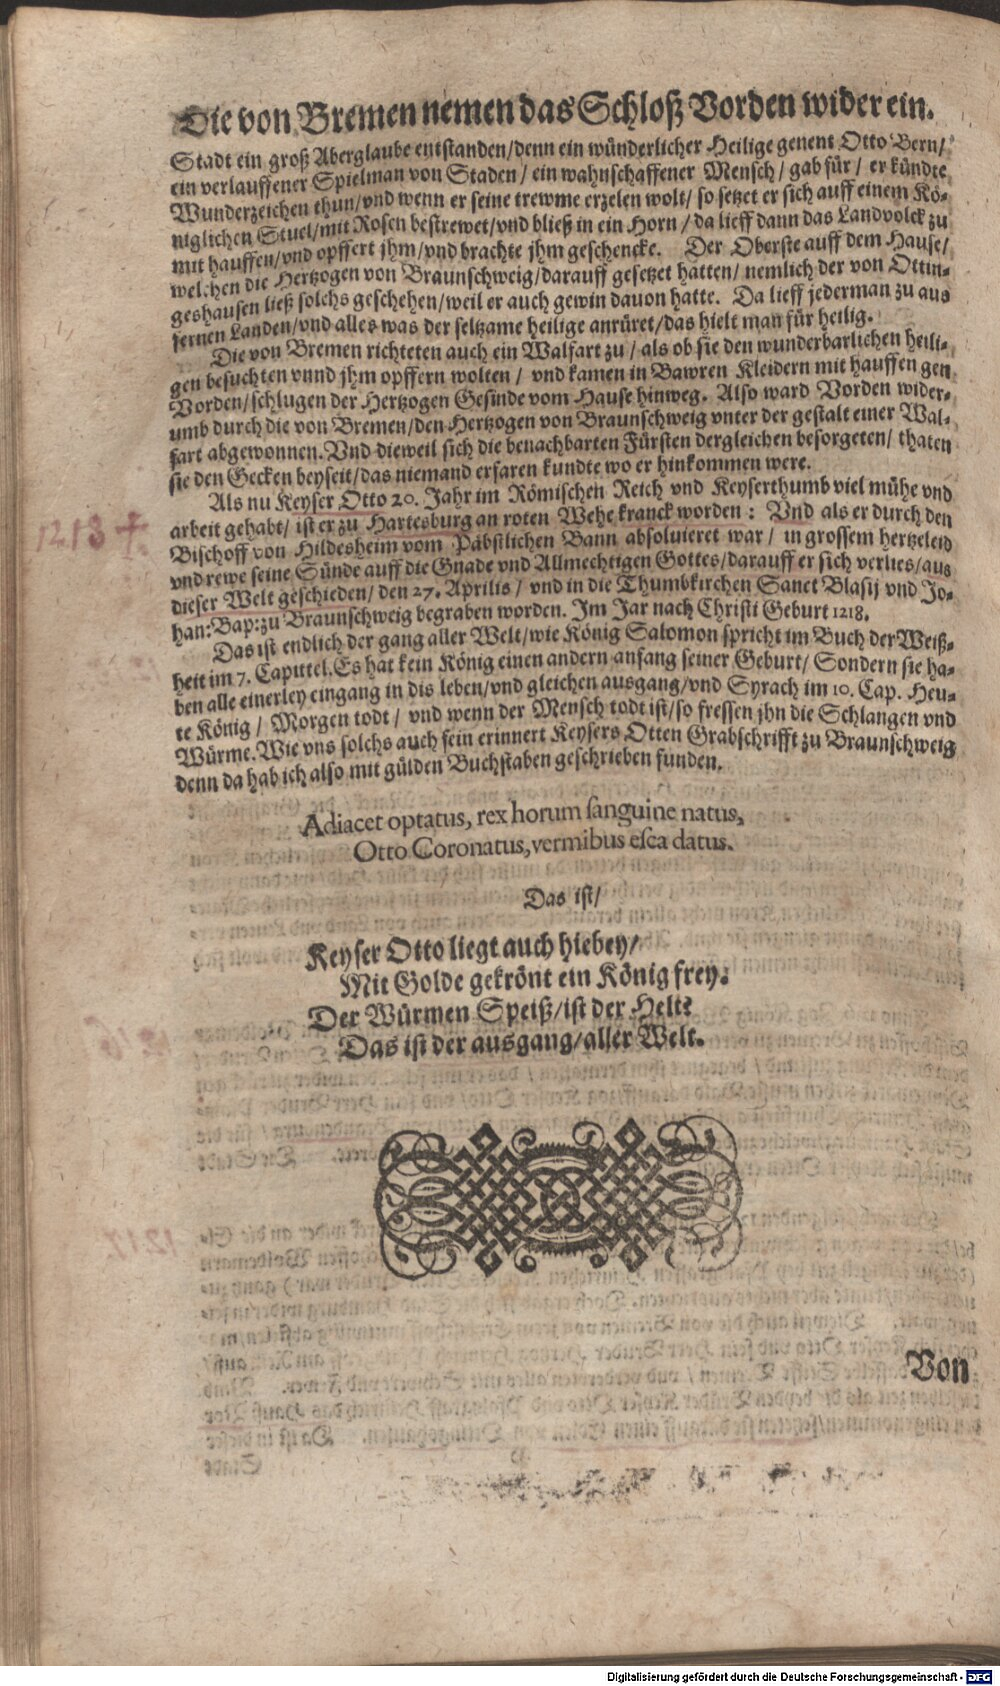 Die von Bremen nemen das Schloß Vorden wider ein.
Stadt ein groß Aberglaube entstanden/denn ein wünderlicher Heilige genent Otto Bern/
ein verlauffener Spielman von Staden / ein wahnschaffener Mensch / gab für / er kündte
Wunderzeichen thun/vnd wenn er seine trewme erzelen wolt/ so setzet er sich auff einem Kö-
niglichen Stuel/mit Rosen bestrewet/vnd bließ in ein Horn / da lieff dann das Landvolck zu
mit hauffen/vnd opffert jhm/vnd brachte jhm geschencke. Der Oberste auff dem Hause/
welchen die Hertzogen von Braunschweig/darauff gesetzet hatten/ nemlich der von Ottin-
geshausen ließ solchs geschehen/weil er auch gewin dauon hatte. Da lieff jederman zu aus
fernen Landen/vnd alles was der seltzame heilige anrüret/das hielt man für heilig.
Die von Bremen richteten auch ein Walfart zu / als ob sie den wunderbarlichen heili-
gen besuchten vnnd jhm opffern wolten / vnd kamen in Bawren Kleidern mit hauffen gen
Vorden/schlugen der Hertzogen Gesinde vom Hause hinweg. Also ward Vorden wider-
umb durch die von Bremen/den Hertzogen von Braunschweig vnter der gestalt einer Wal-
fart abgewonnen. Vnd dieweil sich die benachbarten Fürsten dergleichen besorgeten/ thaten
sie den Gecken beyseit/das niemand erfaren kundte wo er hinkommen were.
Als nu Keyser Otto 20. Jahr im Römischen Reich vnd Keyserthumb viel mühe vnd
arbeit gehabt/ ist er zu Hartesburg an roten Wehe kranck worden : Vnd als er durch den
Bischoff von Hildesheim vom Päbstlichen Bann absoluieret war / in grossem hertzeleid
vnd rewe seine Sünde auff die Gnade vnd Allmechtigen Gottes/darauff er sich verlies/aus
dieser Welt geschieden/ den 27. Aprilis / vnd in die Thumbkirchen Sanct Blasij vnd Jo-
han: Bap: zu Braunschweig begraben worden. Im Jar nach Christi Geburt 1218.
1213 +.
Das ist endlich der gang aller Welt/wie König Salomon spricht im Buch der Weiß-
heit im 7. Capittel. Es hat kein König einen andern anfang seiner Geburt/ Sondern sie ha-
ben alle einerley eingang in dis leben/vnd gleichen ausgang/vnd Syrach im 10. Cap. Heu-
te König / Morgen todt / vnd wenn der Mensch todt ist/so fressen jhn die Schlangen vnd
Würme. Wie vns solchs auch fein erinnert Keysers Otten Grabschrifft zu Braunschweig
denn da hab ich also mit gülden Buchstaben geschrieben funden.
Adiacet optatus, rex horum sanguine natus,
Otto Coronatus, vermibus esca datus.
Das ist/
Keyser Otto liegt auch hiebey/
Mit Golde gekrönt ein König frey.
Der Würmen Speiß/ist der Helt:
Das ist der ausgang/aller Welt.
Von
Digitalisierung gefördert durch die Deutsche Forschungsgemeinschaft - DFG